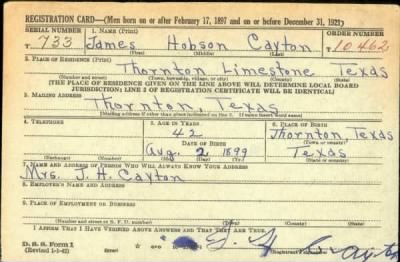 REGISTRATION CARD—(Men born on or after February 17, 1897 and on or before December 31, 1921)
SERIAL NUMBER 1. NAME (Print) ORDER NUMBER
T 733 James Hobson Cayton T 10462
(First) (Middle) (Last)
2. PLACE OF RESIDENCE (Print)
Thornton Limestone Texas
(Number and street) (Town, township, village, or city) (County) (State)
[THE PLACE OF RESIDENCE GIVEN ON THE LINE ABOVE WILL DETERMINE LOCAL BOARD
JURISDICTION; LINE 2 OF REGISTRATION CERTIFICATE WILL BE IDENTICAL]
3. MAILING ADDRESS
Thornton, Texas
[Mailing address if other than place indicated on line 2. If same insert word same]
4. TELEPHONE 5. AGE IN YEARS 6. PLACE OF BIRTH
42 Thornton, Texas
DATE OF BIRTH (Town or county)
Aug. 2 1899 Texas
(Exchange) (Number) (Mo.) (Day) (Yr.) (State or country)
7. NAME AND ADDRESS OF PERSON WHO WILL ALWAYS KNOW YOUR ADDRESS
Mrs. J. H. Cayton
8. EMPLOYER'S NAME AND ADDRESS
9. PLACE OF EMPLOYMENT OR BUSINESS
(Number and street or R. F. D. number) (Town) (County) (State)
I AFFIRM THAT I HAVE VERIFIED ABOVE ANSWERS AND THAT THEY ARE TRUE.
D. S. S. Form 1
(Revised 1-1-42)